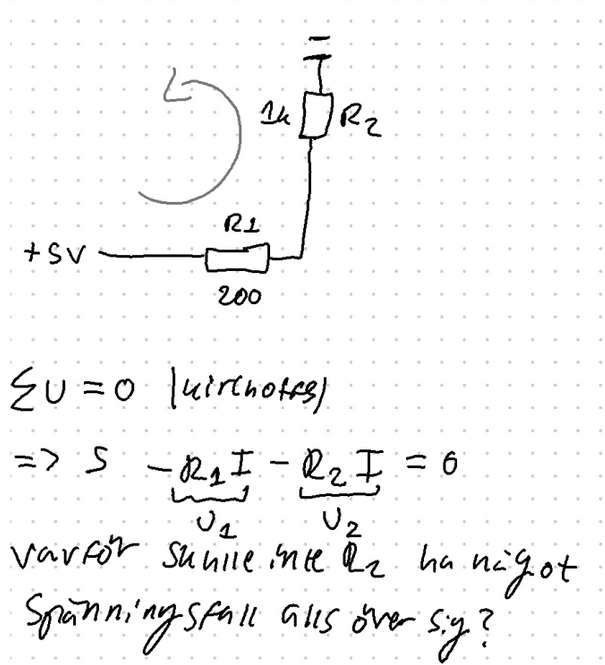 1k R2
R1
+5V
200
ΣU = 0 (kirchoffs)
=> 5 -R1I - R2I = 0
U1 U2
varför skulle inte R2 ha något
Spänningsfall alls över sig?